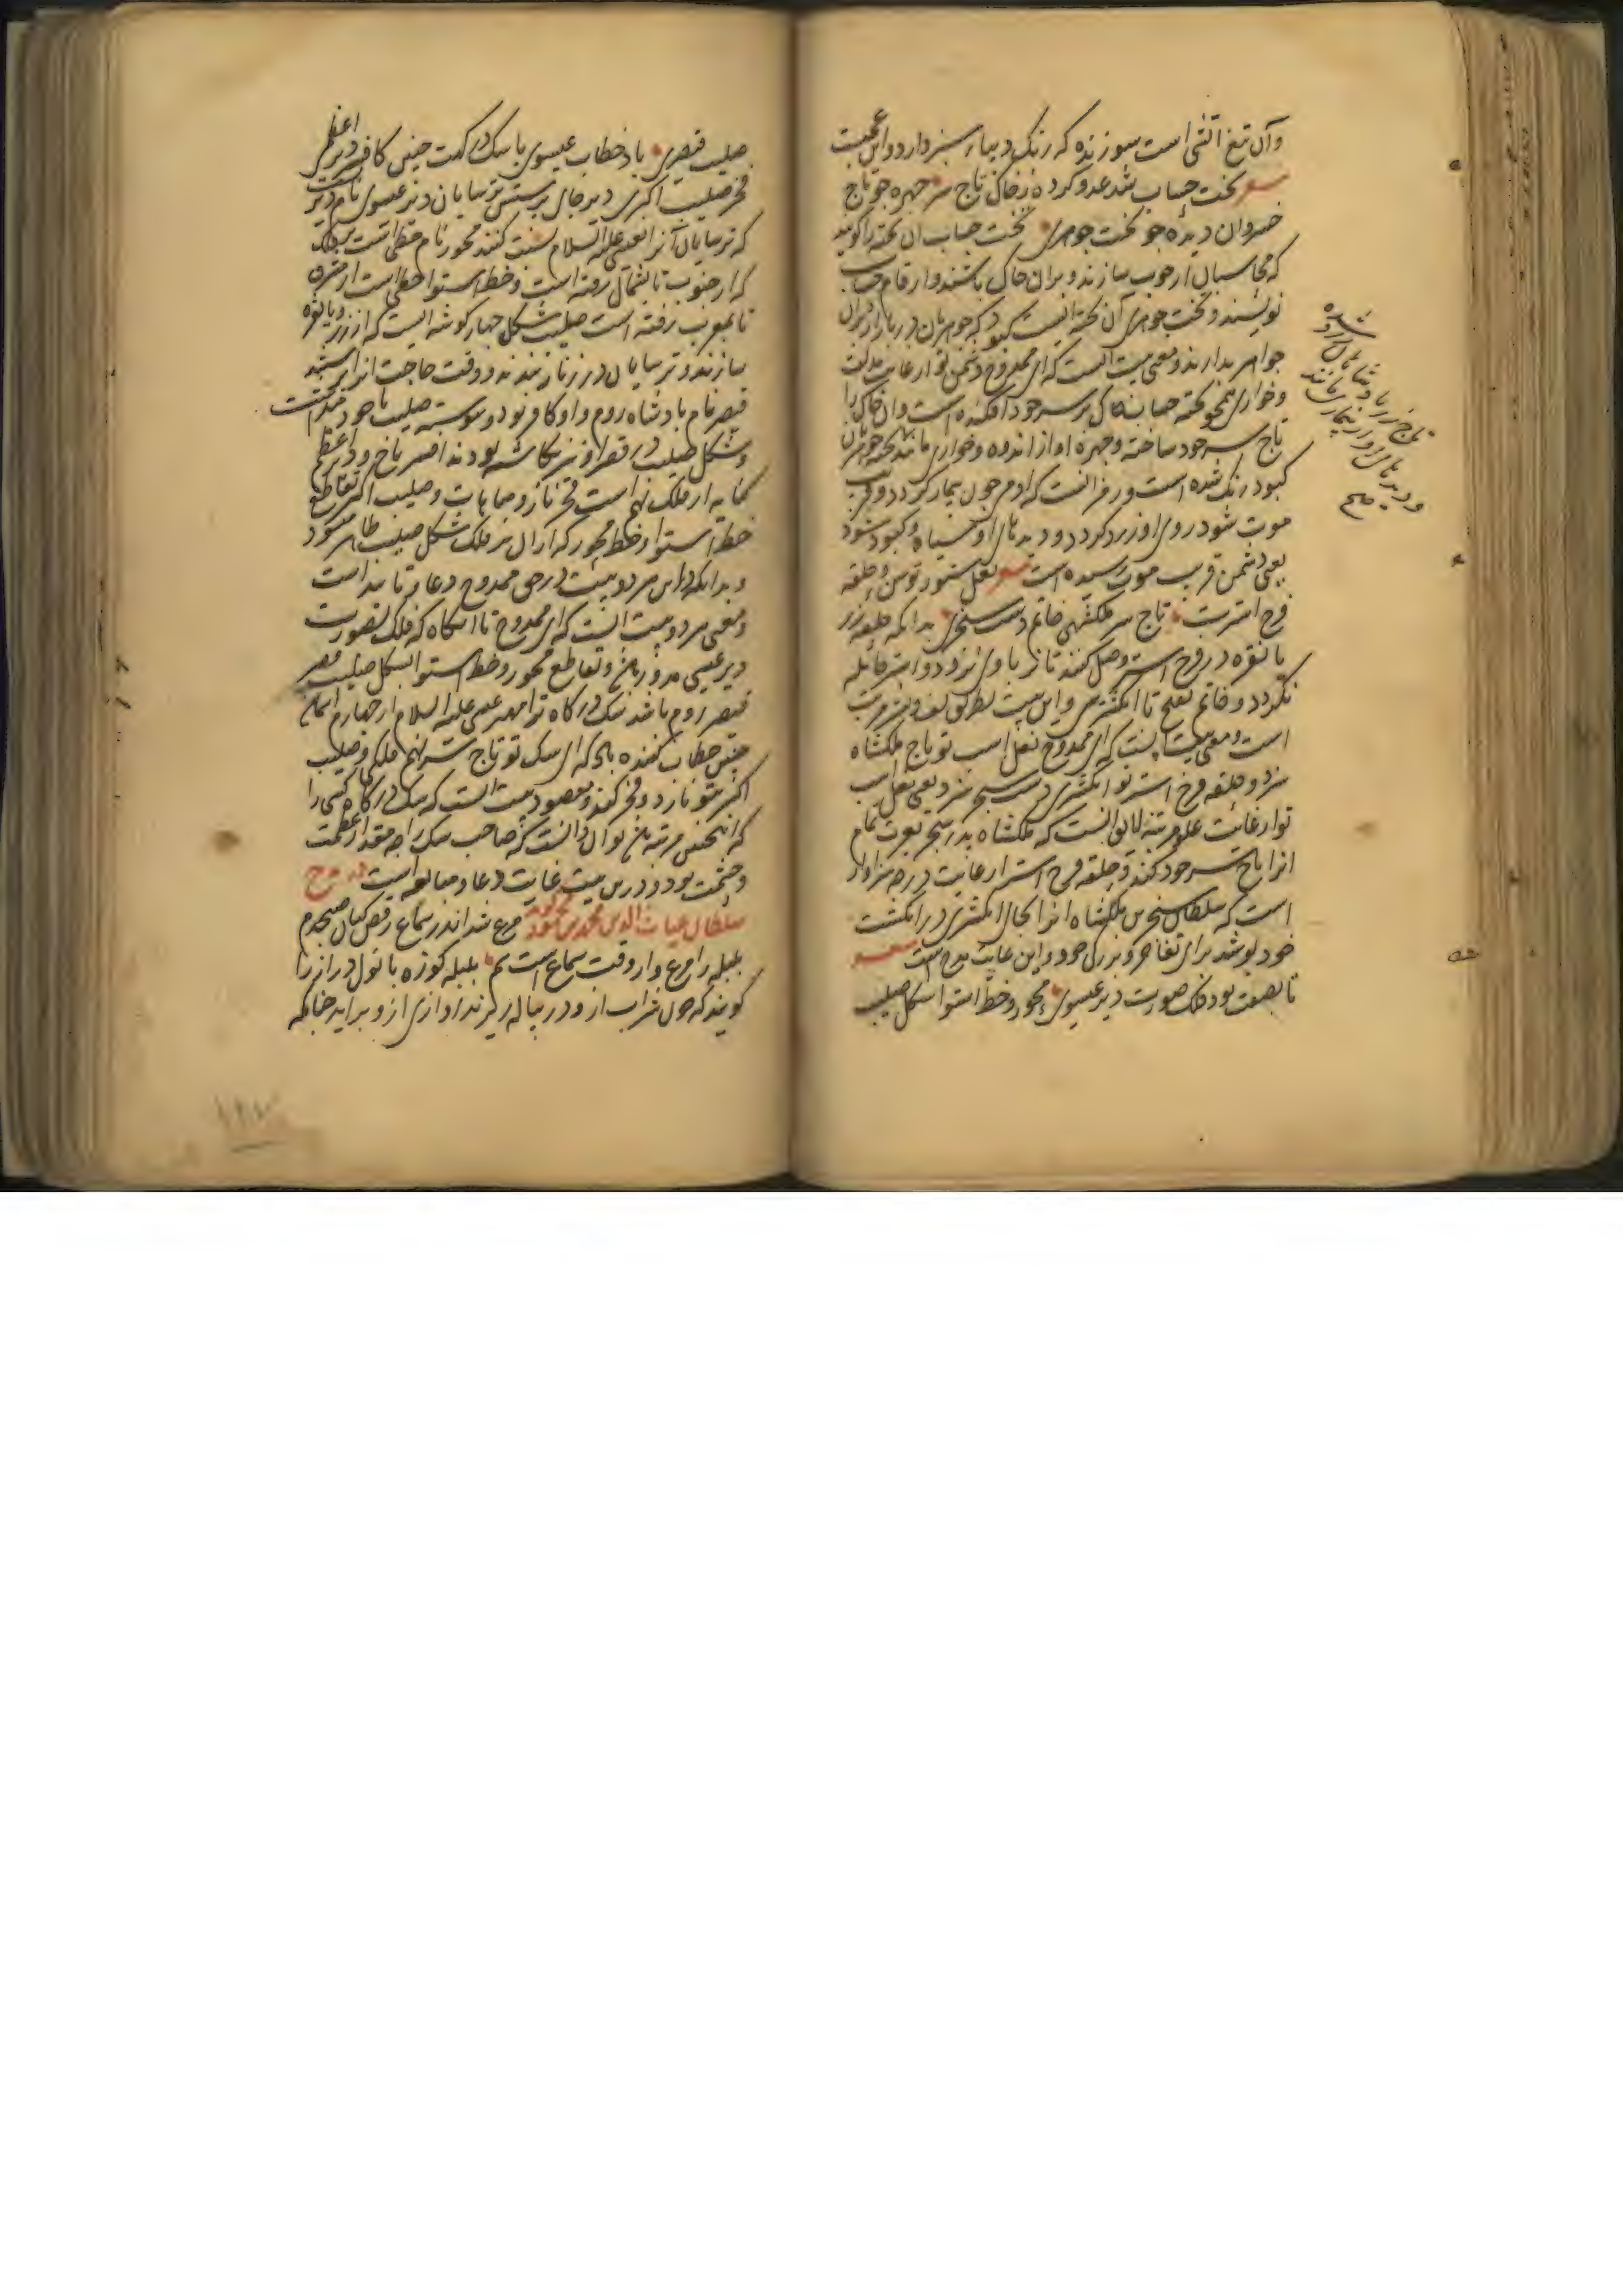 وآن تیغ آتشی است سوزنده که رنگ دیبای سبز دارد و این عجبست
شعر تخت حساب شد عدو کرده ز خاک تاج سر چهره چو تاج
خسروان دیده چو تخت جوهری تخت حساب آن تخته را گویند
که محاسبان از چوب سازند و بران خاک پاشند و ارقام حساب
نویسند و تخت جوهری آن تخته ایست کبود که جوهریان در بازار بران
جواهر بدارند و معنی بیت آنست که ای ممدوح دشمن تو از غایت مذلت
و خواری همچو تخته حساب خاک بر سر خود افکنده است و آن خاک را
تاج سر خود ساخته و چهره او از اندوه و خواری مانند تخته جوهریان
کبود رنگ شده است و رمز آنست که آدم چون بیمار گردد و قریب
موت شود روی او زرد گردد و دیدهای او سیاه و کبود شود
یعنی دشمن قریب موت رسیده است شعر نعل ستور توسن و حلقه
فرج استرت تاج سر ملکشهی خاتم دست سنجری بدانکه حلقه زر
یا نقره در فرج استر وصل کنند تا نر با وی نزود و استر حامله
نگردد و خاتم بفتح تا انگشتری و این بیت بطریق لف و نشر مرتب
است و معنی بیت اینست که ای ممدوح نعل اسب تو تاج ملکشاه
سزد و حلقه فرج استر تو انگشتری دست سنجر سزد یعنی نعل اسب
تو از غایت علو مرتبه لایق آنست که ملکشاه پدر سنجر بعزت تمام
آنرا تاج سر خود کند و حلقه فرج استر از غایت درجه سزاوار
است که سلطان سنجر بن ملکشاه آنرا بجای انگشتری در انگشت
خود پوشد برای تفاخر و بزرگی خود و این غایت مدح است شعر
تا بصفت بود فلک صورت دیر عیسوی محور و خط استوا شکل صلیب
تاج زر پادشاهان را زرد
و دیدهای او از بیماری مانند
صح
صلیب قیصری باد خطاب عیسوی با سگ درگهت چنین کافسر دیر اعظمی
فخر صلیب اکبری دیر جای پرستش ترسایان و دیر عیسوی نام دیریست
که ترسایان آنرا بعیسی علیه السلام نسبت کنند محور نام خطی است بر فلک
که از جنوب تا بشمال رفته است و خط استوا خطی است از مشرق
تا بمغرب رفته است صلیب شکل چهار گوشه ایست که از زر و یا نقره
سازند و ترسایان در زنار بندند و وقت حاجت آنرا پرستند
قیصر نام پادشاه روم و او کافر بود و پیوسته صلیب با خود میداشت
و شکل صلیب در قصر او نیز نگاشته بودند افسر تاج و دیر اعظم
کنایه از فلک نهم است فخر ناز و مباهات و صلیب اکبر تقاطع
خط استوا و خط محور که از آن بر فلک شکل صلیب ظاهر میشود
و بدانکه این هر دو بیت در حق ممدوح دعا و تا بید است
و معنی هر دو بیت آنست که ای ممدوح تا آنگاه که فلک بصورت
دیر عیسی مدور بماند و تقاطع محور و خط استوا بشکل صلیب قصر
قیصر روم باشد سگ درگاه ترا مهتر عیسی علیه السلام از چهارم آسمان
چنین خطاب کننده باد که ای سگ تو تاج سر نهم فلکی و صلیب
اکبر بتو نازد و فخر کند و مقصود بیت آنست که سگ درگاه کسی را
که اینچنین مرتبه باشد توان دانست که صاحب سگ را چه مقدار عظمت
و حشمت بود و درین بیت غایت دعا و مبالغه است در مدح
سلطان غیاث الدین محمد بن محمود گوید مرغ شد اندر سماع رقص کنان صبحدم
بلبله را مرغ وار وقت سماع است هم بلبله کوزه با نول دراز را
گویند که چون شراب ازو در پیاله ریزند آوازی ازو براید چنانکه